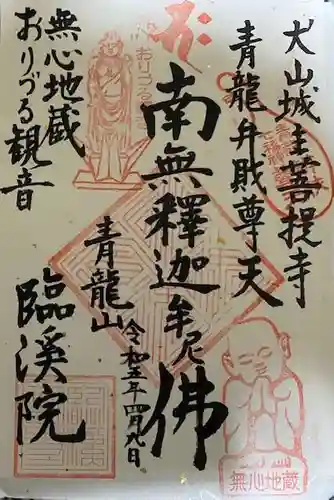 犬山城主菩提寺
青龍弁財尊天
南無釋迦牟尼佛
令和五年四月九日
青龍山
臨溪院
無心地蔵
おりづる観音
おりづる
無心地蔵